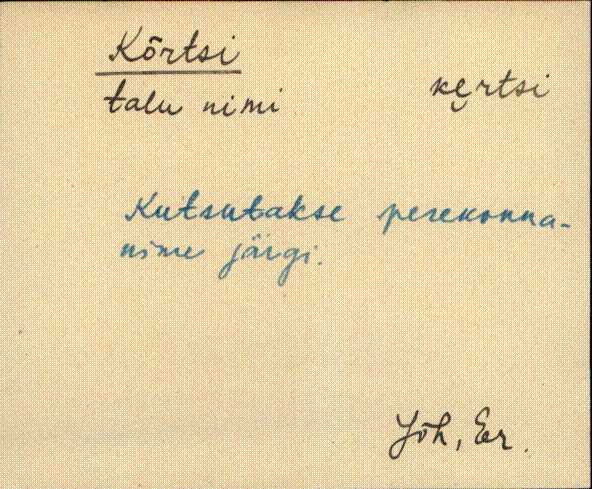 Kõrtsi
talu nimi ke̮rtsi
Kutsutakse perekonna-
nime järgi.
Jõh, Er.